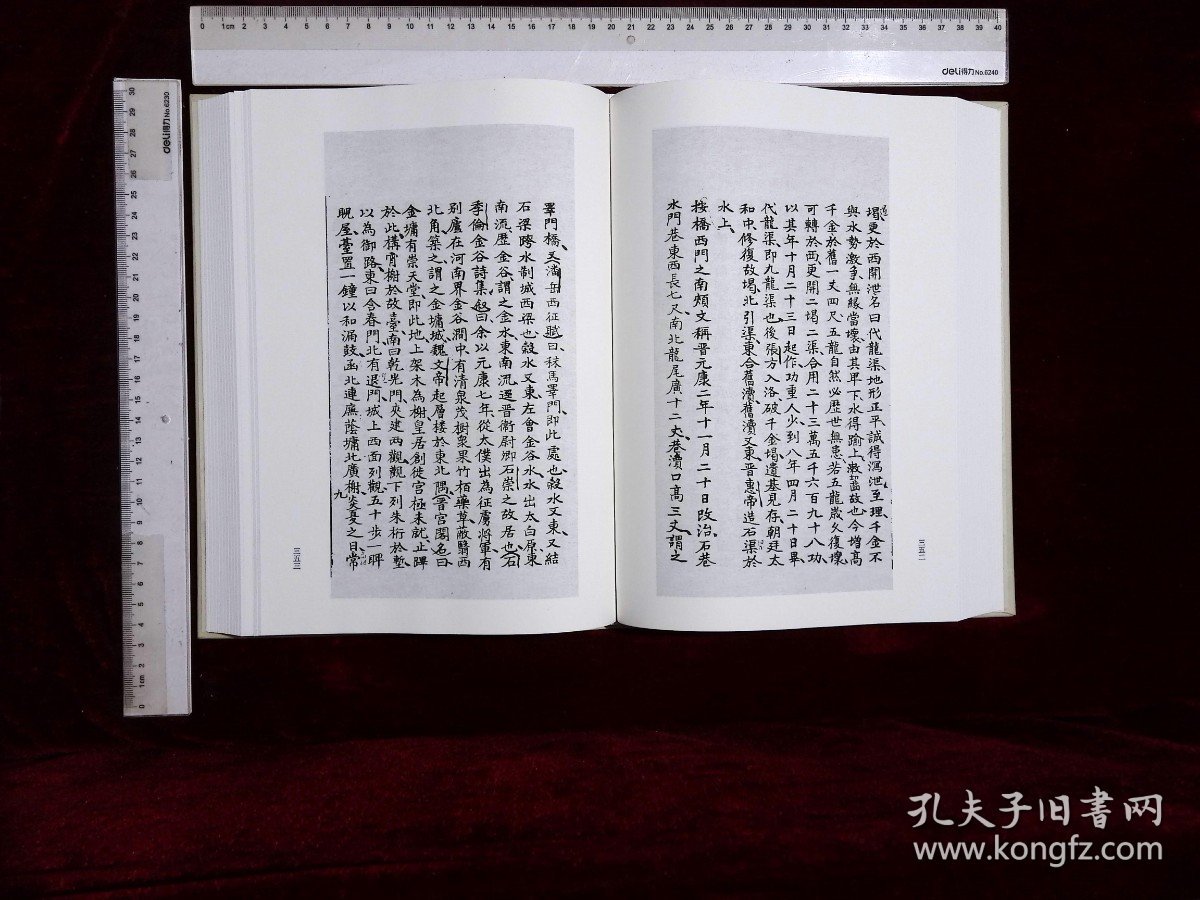 堨更於西開泄名曰代龍渠地形正平誠得瀉泄至理千金不
與水勢激爭無緣當壞由其卑下水得踰上漱齧故也今增高
千金於舊一丈四尺五龍自然必歷世無患若五龍歲久復壞
可轉於西更開二堨二渠合用二十三萬五千六百九十八功
以其年十月二十三日起作功重人少到八年四月二十日畢
代龍渠即九龍渠也後張方入洛破千金堨遺基見存朝廷太
和中修復故堨北引渠東合舊瀆舊瀆又東晉惠帝造石渠於
水上
按橋西門之南頰文稱晉元康二年十一月二十日改治石巷
水門巷東西長七尺南北龍尾廣十二丈巷瀆口高三丈謂之
睪門橋又潘岳西征賦曰秣馬睪門即此處也穀水又東又結
石梁跨水制城西梁也穀水又東左會金谷水水出太白原東
南流歷金谷謂之金水東南流逕晉衛尉卿石崇之故居也石
季倫金谷詩集叙曰余以元康七年從太僕出為征虜將軍有
别廬在河南界金谷澗中有清泉茂樹衆果竹栢藥草蔽翳西
北角築之謂之金墉城魏文帝起層樓於東北隅晉宮閣名曰
金墉有崇天堂即此地上架木為榭皇居創徙宮極未就止蹕
於此構宵榭於故臺南曰乾光門夾建兩觀觀下列朱桁於塹
以為御路東曰含春門北有退門城上西面列觀五十步一睥
睨屋臺置一鐘以和漏鼓函北連廡蔭墉北廣榭炎夏之日常
九
deli得力 No.6240
deli得力 No.6230
孔夫子旧書网
www.kongfz.com